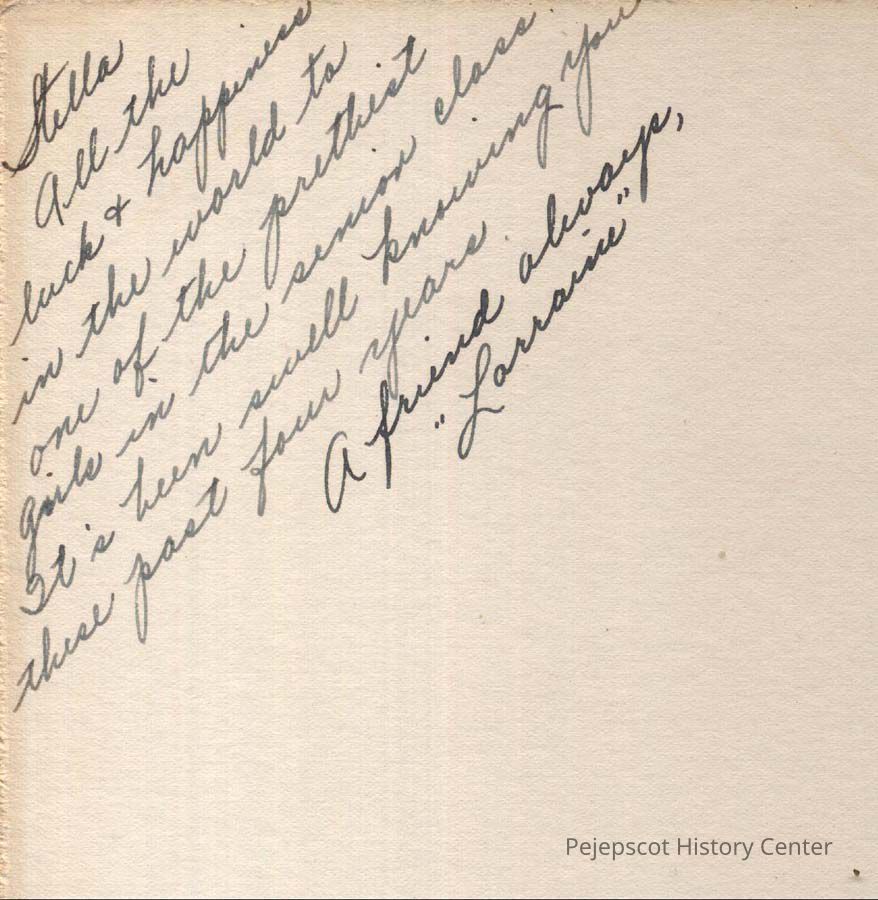 Stella
All the
luck & happiness
in the world to
one of the prettiest
girls in the senior class.
It's been swell knowing you
these past four years.
A friend always,
"Lorraine"
Pejepscot History Center